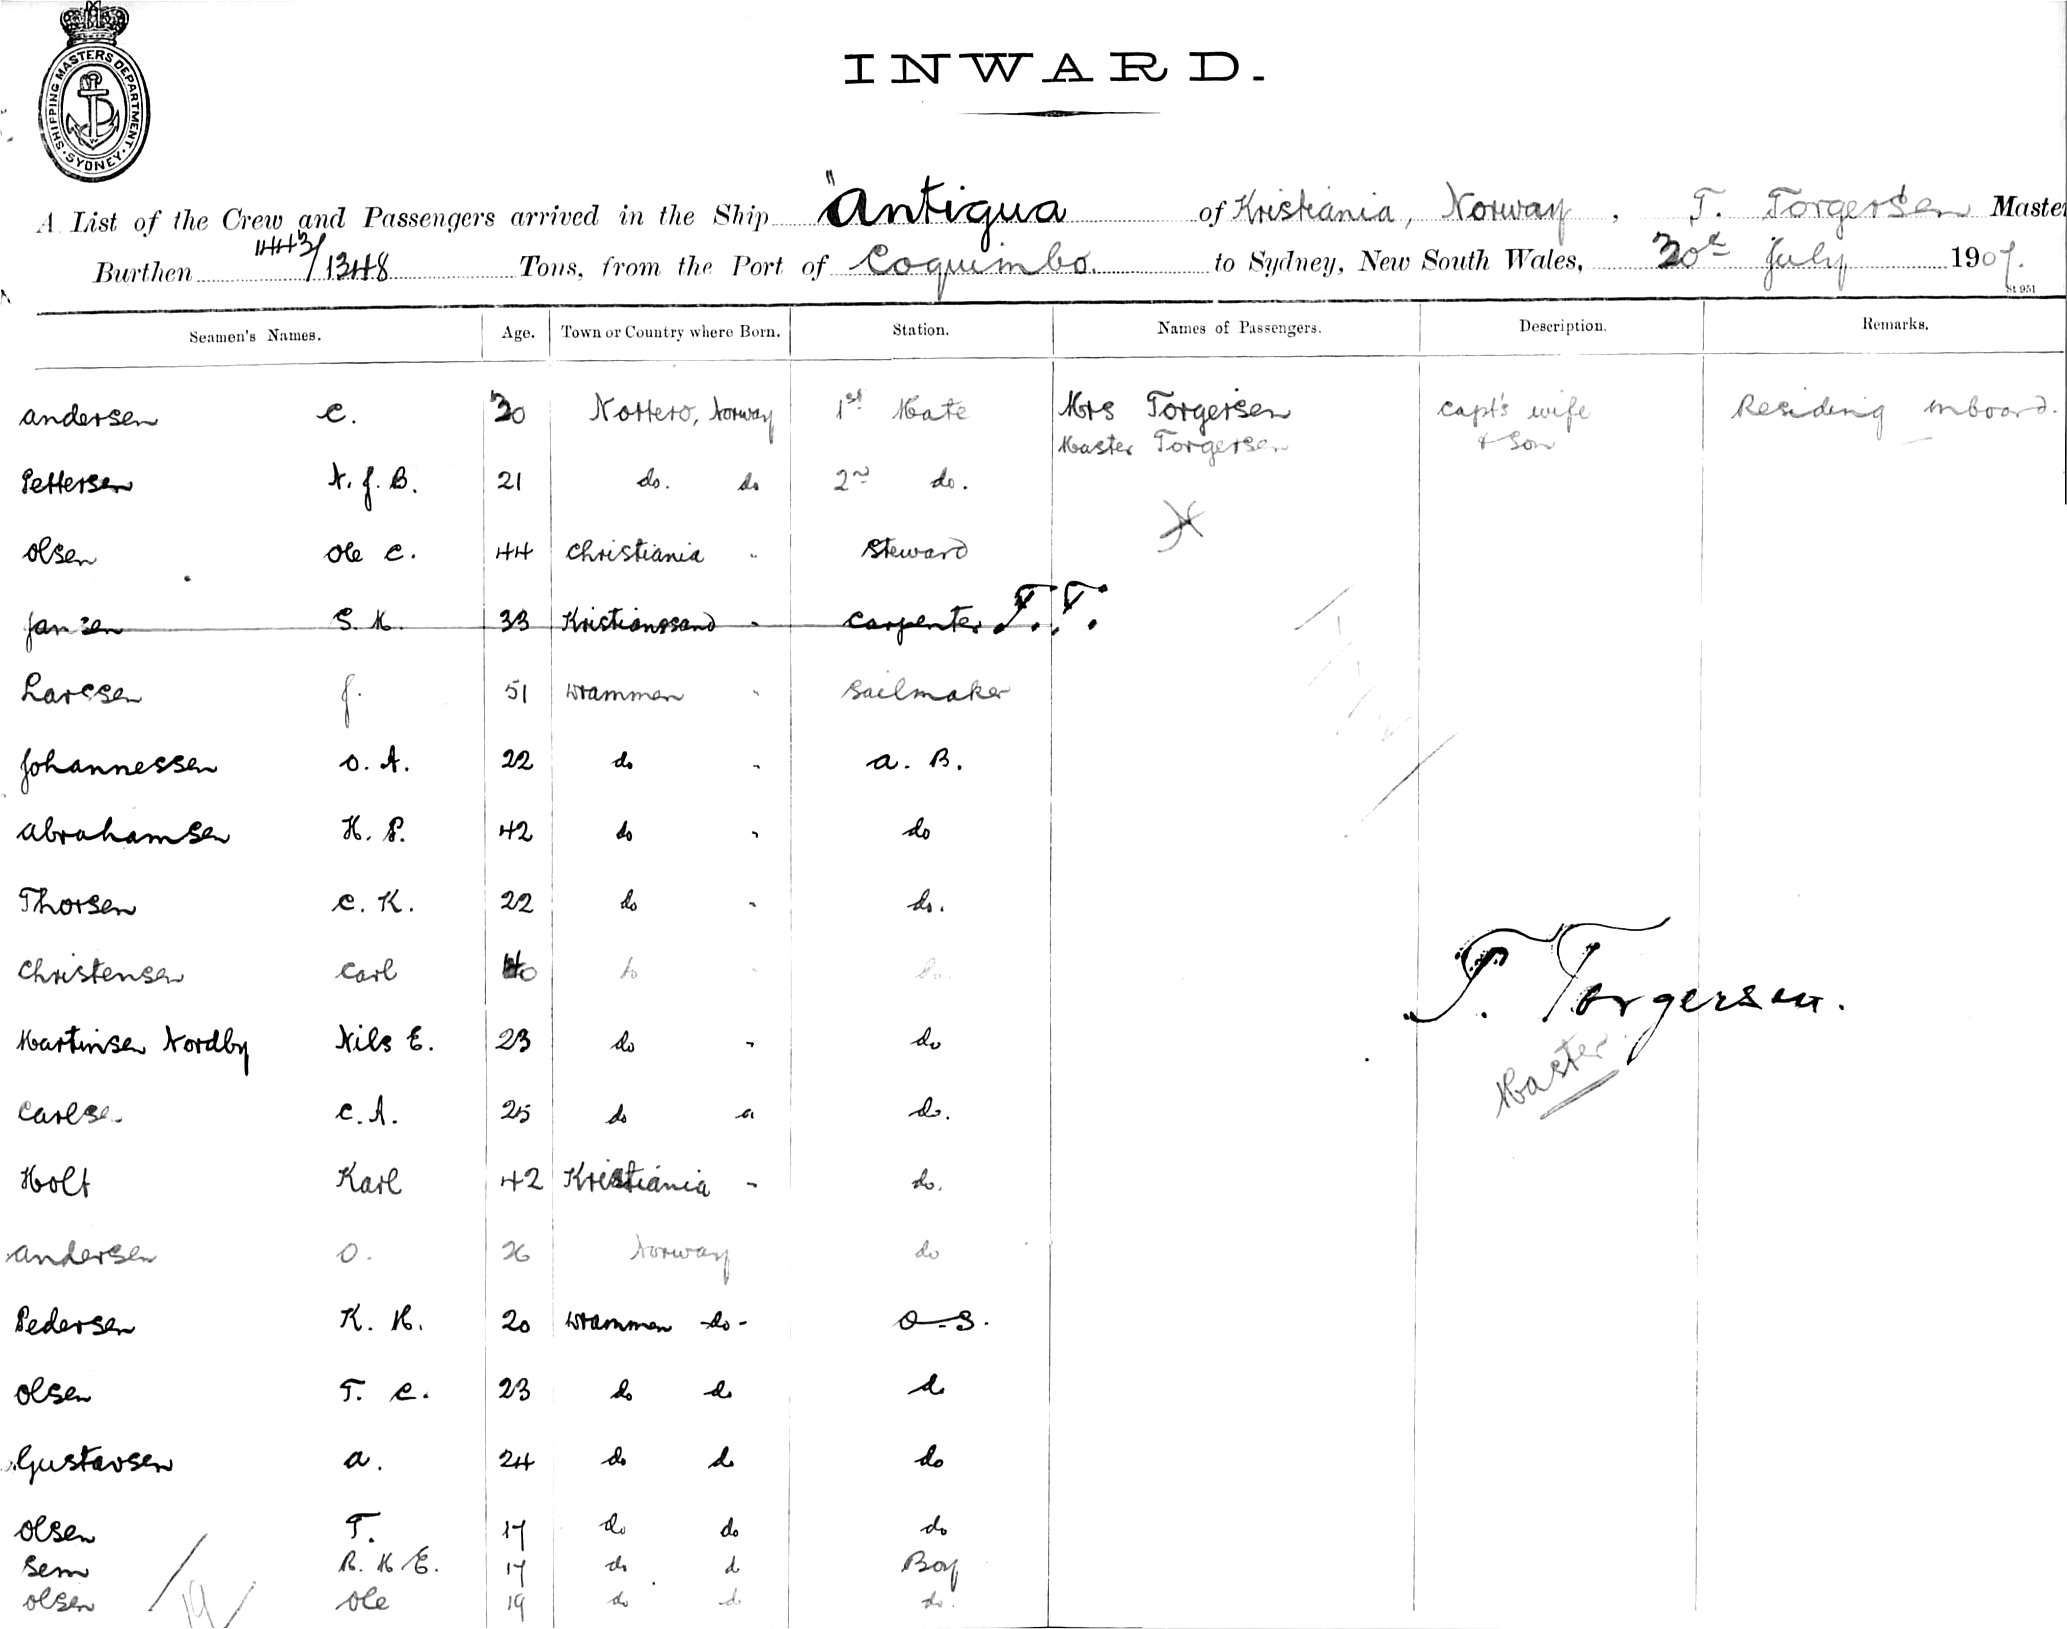 SHIPPING MASTERS DEPARTMENT.
SYDNEY
INWARD.
A List of the Crew and Passengers arrived in the Ship "Antigua of Kristiania, Norway, T. Torgersen Master
Burthen 1443/1348 Tons, from the Port of Coquimbo. to Sydney, New South Wales, 30th July 1907.
St 951
Seamen's Names. Age. Town or Country where Born. Station. Names of Passengers. Description. Remarks.
Andersen C. 30 Nottero, Norway 1st Mate Mrs Torgersen Capt's wife Residing onboard.
Master Torgersen & Son
Pettersen N. J. B. 21 do. do 2nd do.
Olsen Ole C. 44 Christiania " Steward
Jansen S. M. 33 Kristianssand " Carpenter T.T.
Larssen J. 51 Drammen " Sailmaker
Johannessen O. A. 22 do " A. B.
Abrahamsen H. P. 42 do " do
Thorsen C. K. 22 do " do.
Christensen Carl 40 do " do.
T. Torgersen.
Master
Martinsen Nordby Nils E. 23 do " do
Carlse C. A. 25 do do.
Holt Karl 42 Kristiania " do.
Andersen O. 26 Norway do
Pedersen K. H. 20 Drammen do O.S.
Olsen T. C. 23 do do do
Gustavsen A. 24 do do do
Olsen T. 17 do do do
Sem R. H. E. 17 do d Boy
Olsen Ole 19 do do do.
19